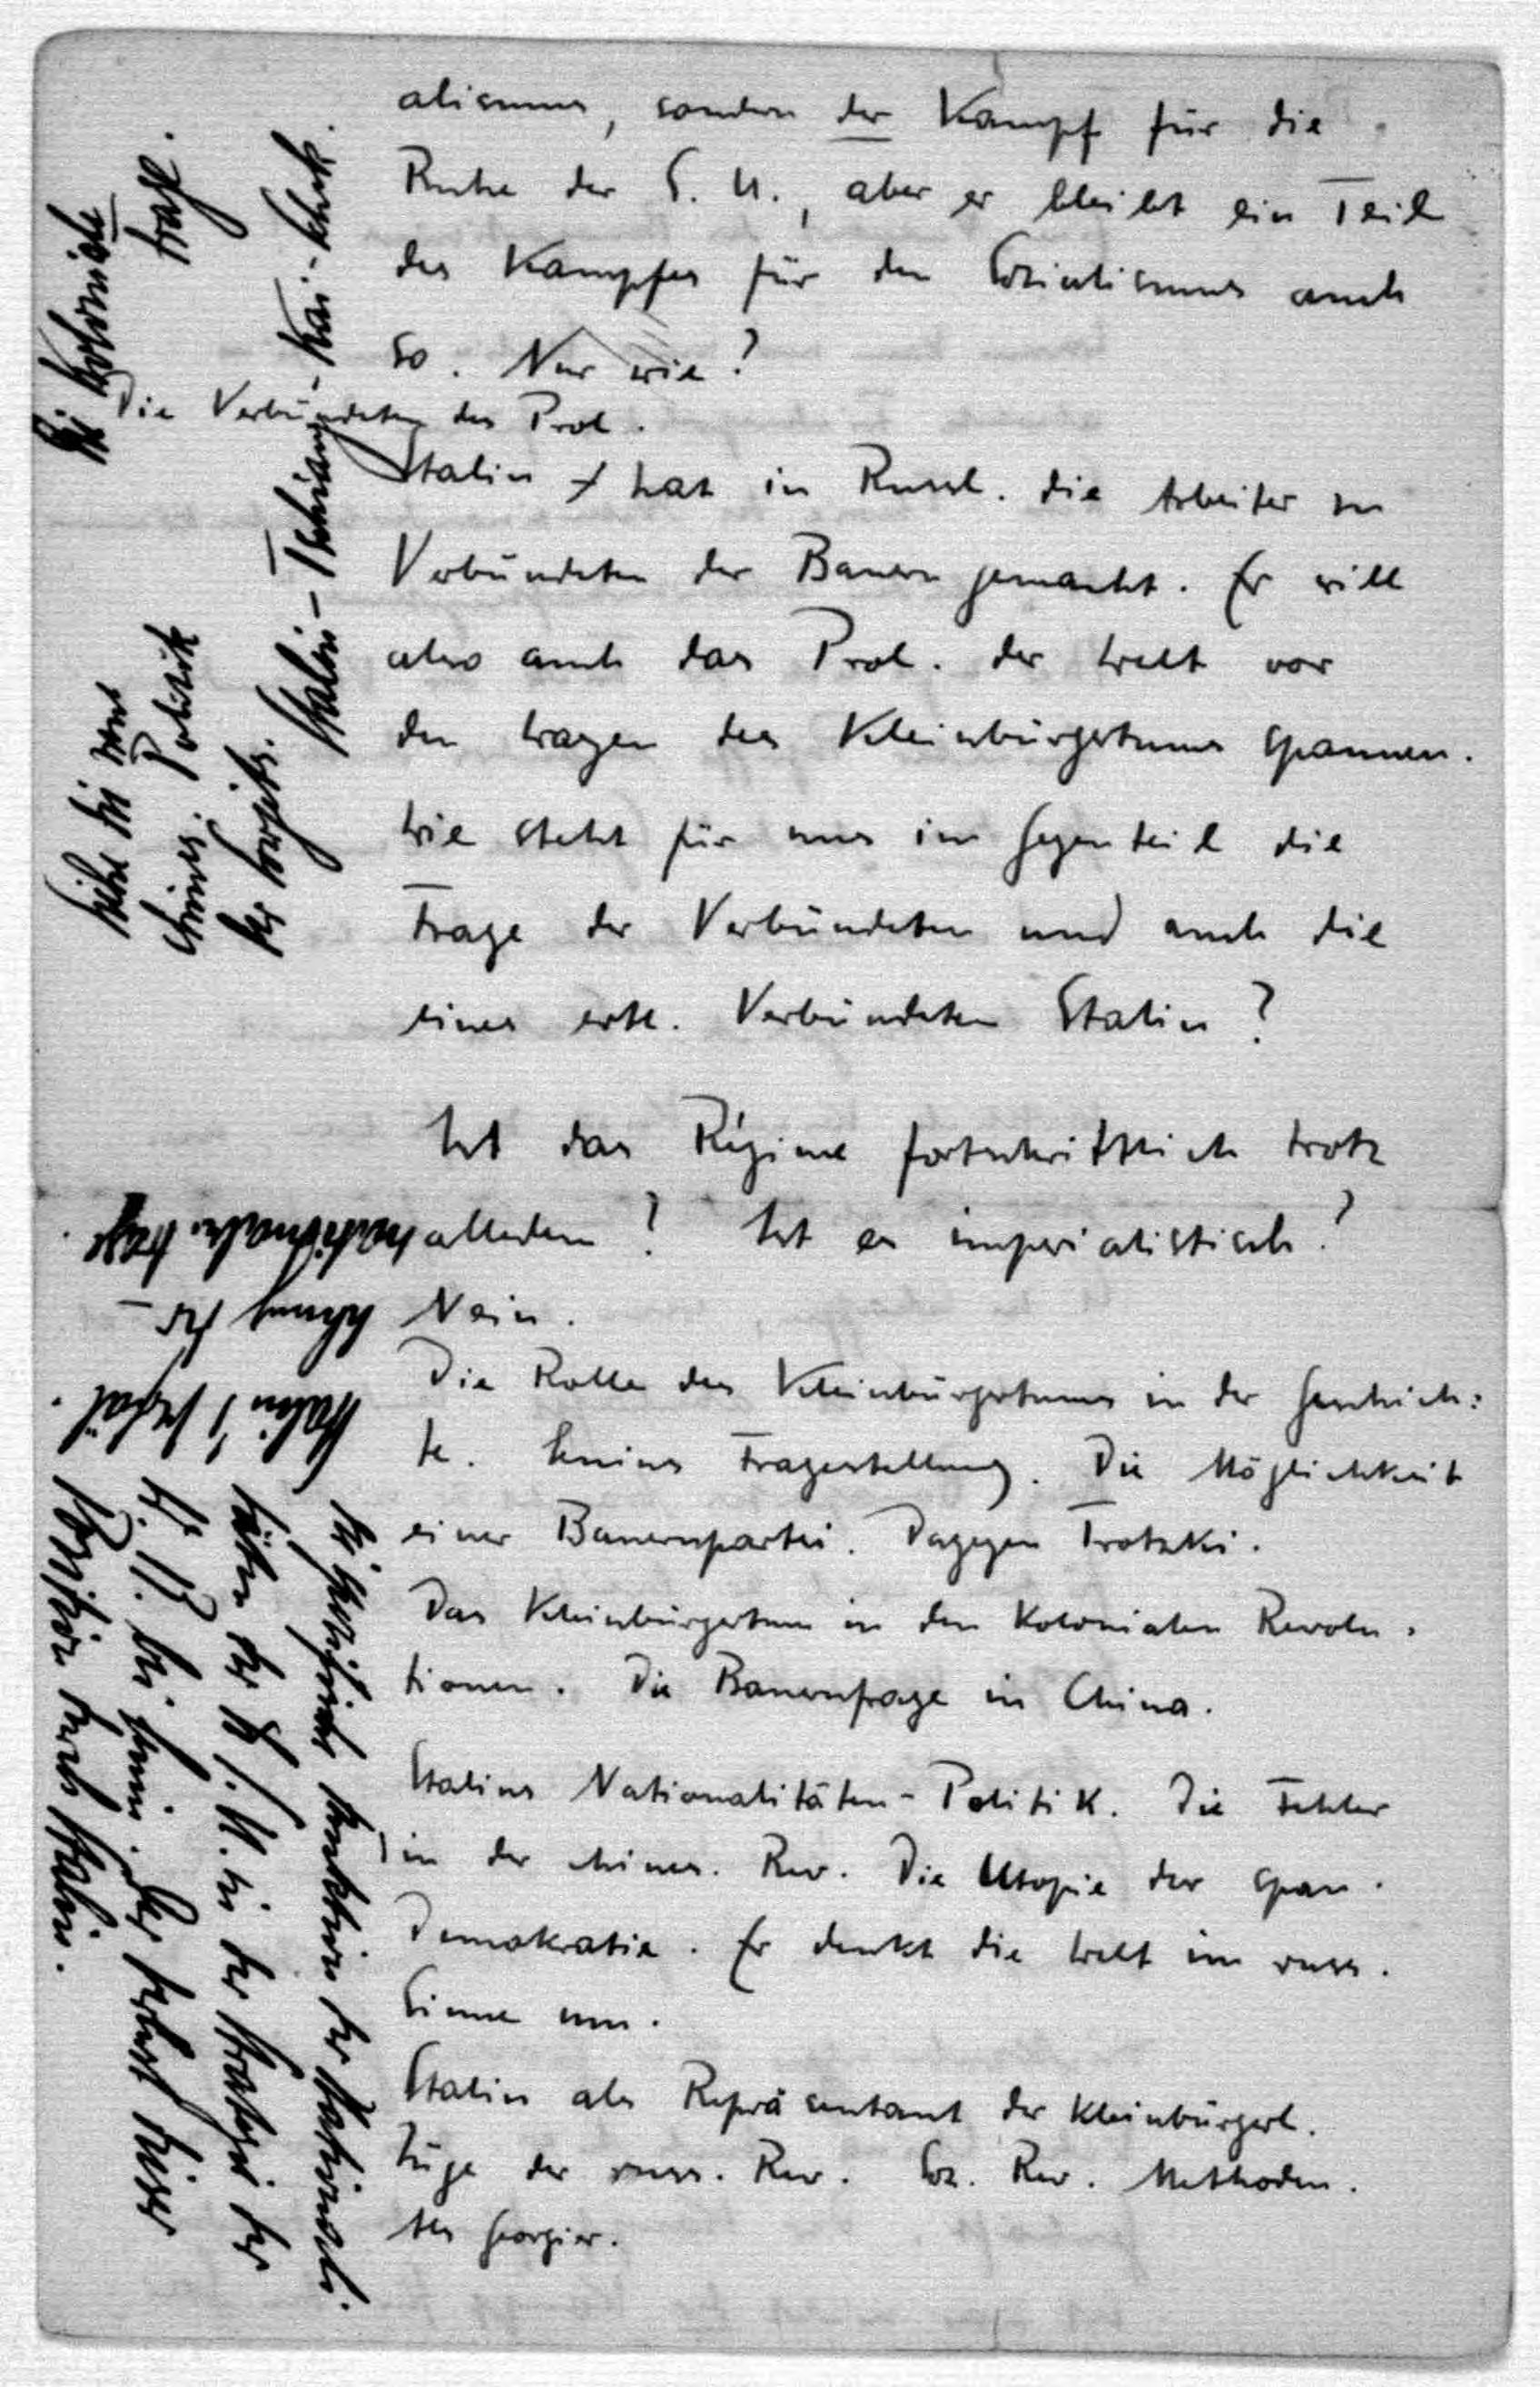 alismus, sondern der Kampf für die
Ruhe der S. U., aber er bleibt ein Teil
des Kampfes für den Sozialismus auch
so. Nur wie?
Die Verbündeten des Prol.
Stalin hat in Russl. die Arbeiter zu
Verbündeten der Bauern gemacht. Er will
also auch das Prol. der Welt vor
den Wagen des Kleinbürgertums spannen.
Wie steht für uns im Gegenteil die
Frage der Verbündeten und auch die
eines Verbündeten Stalin?
Ist das Régime fortschrittlich trotz
alledem? Ist es imperialistisch?
Nein.
Die Rolle des Kleinbürgertums in der Geschich:
te. Lenins Fragestellung. Die Möglichkeit
einer Bauernpartei. Dagegen Trotzki.
Das Kleinbürgertum in den Kolonialen Revolu-
tionen. Die Bauernfrage in China.
Stalins Nationalitäten-Politik. Die Fehler
in der chines. Rev. Die Utopie der span.
Demokratie. Er denkt die Welt im russ.
Sinne um.
Stalin als Repräsentant der Kleinbürgerl.
Züge der russ. Rev. Soz. Rev. Methoden.
Der Georgier.
Die Koloniale
Frage.
Siehe die
chines. Politik
des
Stalin - Tschiang-Kai-schek.
Stalin's
der
nationalen Frage.
Die Funktion der Nationali-
täten der S. U. in der Strategie der
W. R. bei Lenin. Der Verlust dieser
Position durch Stalin.